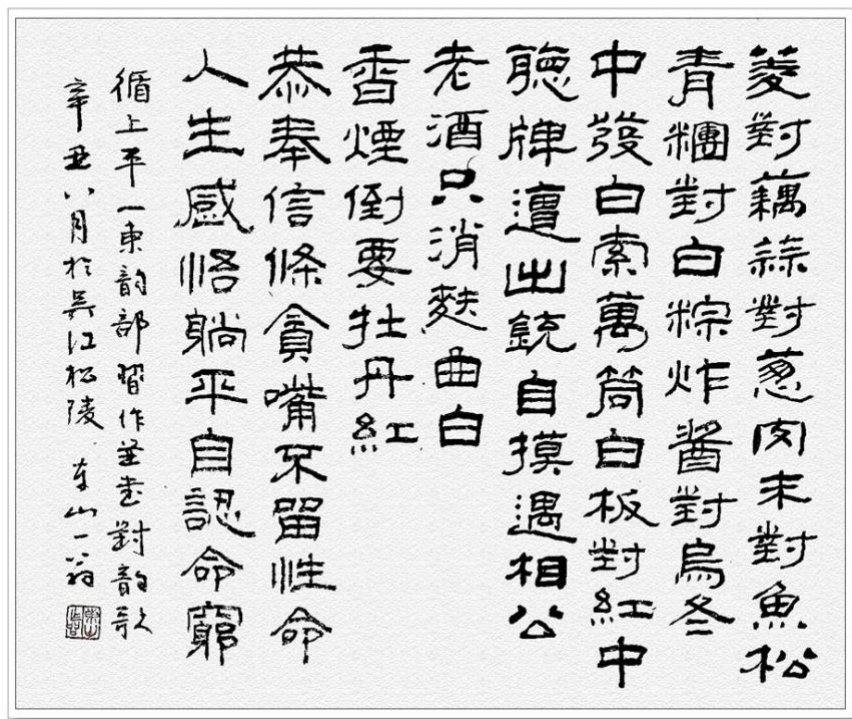 菱對藕蒜對葱肉末對魚松
青糰對白粽炸醬對烏冬
中發白索萬筒白板對紅中
聽牌遭出銃自摸遇相公
老酒只消麩曲白
香煙倒要牡丹紅
恭奉信條貪嘴不留性命
人生感悟躺平自認命窮
循上平一東韵部習作並書對韵歌
辛丑八月於吳江松陵 東山一翁